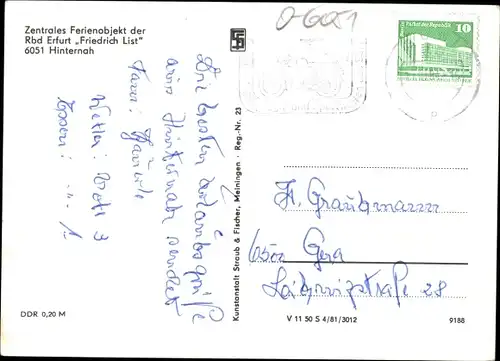 Zentrales Ferienobjekt der
Rbd Erfurt „Friedrich List"
6051 Hinternah
0-6051
Palast der Republik
10
DDR
Die besten Urlaubsgrüße
aus Hinternah sendet
Wetter:
Essen: " 1
Kunstanstalt Straub & Fischer, Meiningen · Reg.-Nr. 23
Graubmann
6502 Gera
Leibnizstraße 28
DDR 0,20 M
V 11 50 S 4/81/3012
9188